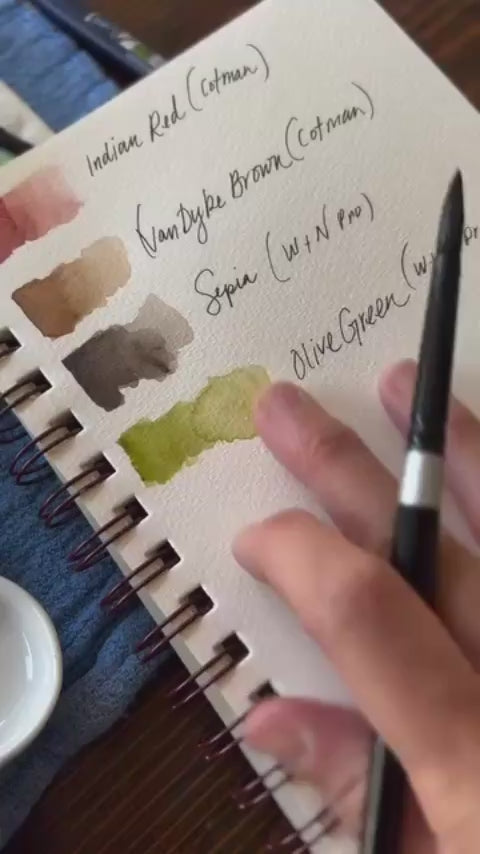 Indian Red (Cotman)
VanDyke Brown (Cotman)
Sepia (W+N Pro)
Olive Green (W+